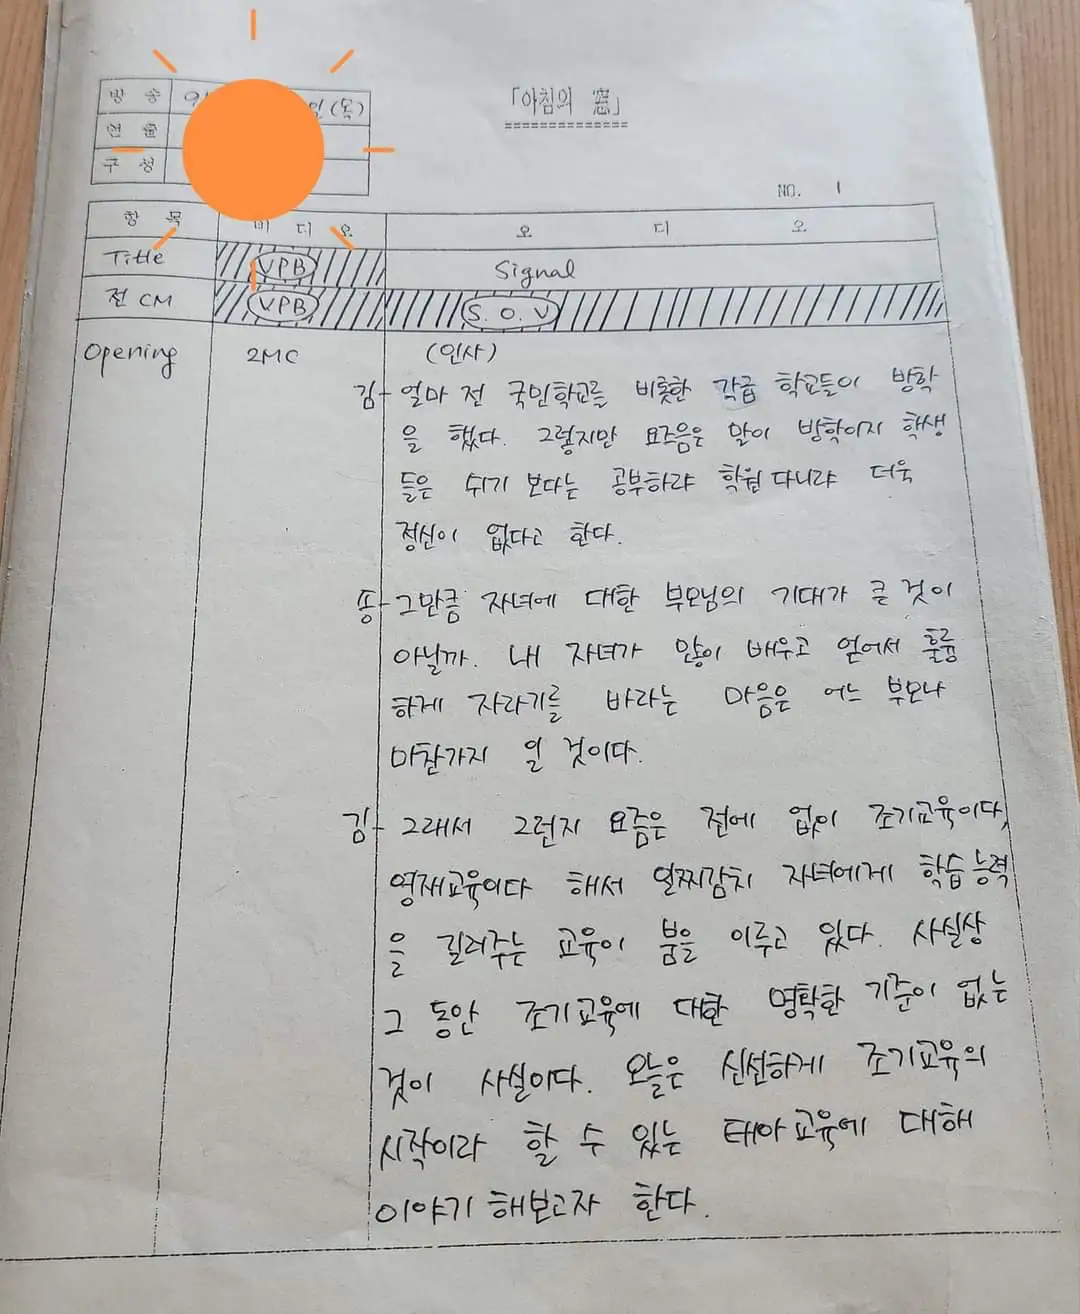 방 송 일(목)
「아침의 窓」
연 출
구 성
NO. 1
항 목 비 디 오 오 디 오
Title VPB Signal
전 CM VPB S.O.V
Opening 2MC (인사)
김- 얼마 전 국민학교를 비롯한 각급 학교들이 방학
을 했다. 그렇지만 요즈음은 말이 방학이지 학생
들은 쉬기 보다는 공부하랴 학원 다니랴 더욱
정신이 없다고 한다.
송- 그만큼 자녀에 대한 부모님의 기대가 큰 것이
아닐까. 내 자녀가 많이 배우고 얻어서 훌륭
하게 자라기를 바라는 마음은 어느 부모나
마찬가지 일 것이다.
김- 그래서 그런지 요즘은 전에 없이 조기교육이다,
영재교육이다 해서 일찌감치 자녀에게 학습능력
을 길러주는 교육이 붐을 이루고 있다. 사실상
그 동안 조기교육에 대한 명확한 기준이 없는
것이 사실이다. 오늘은 신선하게 조기교육의
시작이라 할 수 있는 태아교육에 대해
이야기 해보고자 한다.